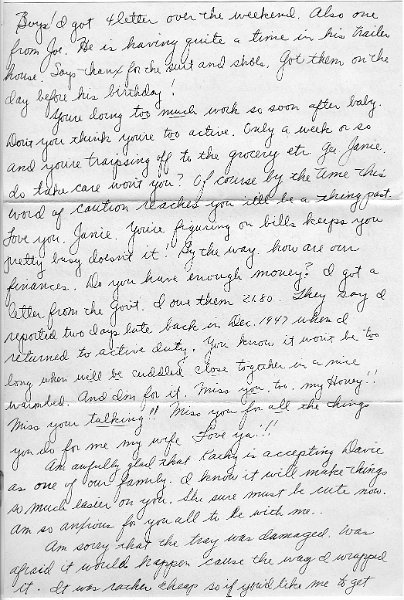 Boys! I got 4 letter over the weekend. Also one
from Joe. He is having quite a time in his trailer
house. Says thanx for the suit and shoes. Got them on the
day before his birthday!
You're doing too much work so soon after baby.
Don't you think you're too active. Only a week or so
and you're traipsing off to the grocery etc. Gee Janie.
do take care won't you? Of course by the time this
word of caution reaches you it'll be a thing past.
Love you. Janie. You're figuring on bills keeps you
pretty busy doesn't it! By the way how are our
finances. Do you have enough money? I got a
letter from the Gov't. I owe them 21.80. They say I
reported two days late back in Dec. 1947 when I
returned to active duty. You know it won't be too
long when will be cuddled close together in a nice
warm bed. And I'm for it. Miss you too, my Honey!!
Miss your talking!! Miss you for all the things
you do for me my wife Love ya!!
Am awfully glad that is accepting Davie
as one of our family. I know it will make things
so much easier on you. She sure must be cute now.
Am so anxious for you all to be with me.
Am sorry that the tray was damaged. Was
afraid it would happen cause the way I wrapped
it. It was rather cheap so if you'd like me to get